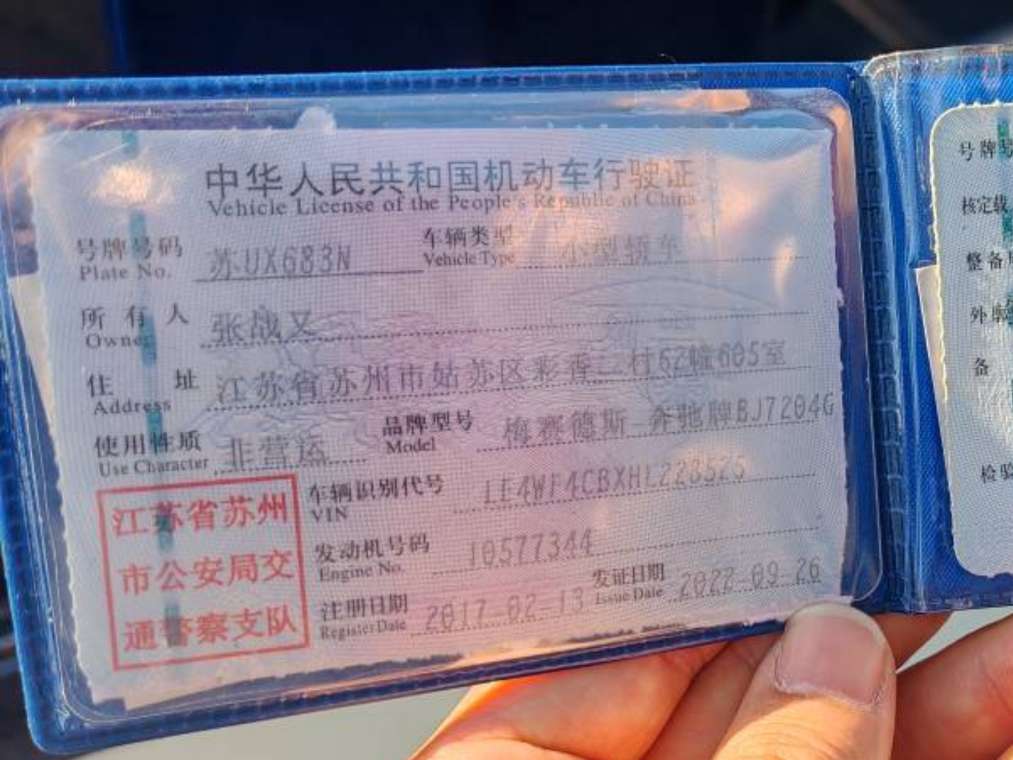 中华人民共和国机动车行驶证
Vehicle License of the People's Republic of China
号牌号码 苏UX683N 车辆类型 小型轿车
Plate No. Vehicle Type
所有人 张战又
Owner
住址 江苏省苏州市姑苏区彩香二村62幢605室
Address
使用性质 非营运 品牌型号 梅赛德斯-奔驰牌BJ7204G
Use Character Model
江苏省苏州
市公安局交
通警察支队
车辆识别代号
VIN
发动机号码 10577344
Engine No.
注册日期 2017-02-13 发证日期 2022-09-26
Register Date Issue Date
号牌号
核定载
整备
外廓
备
检验